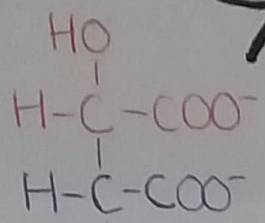 HO
H-C-COO⁻
H-C-COO⁻